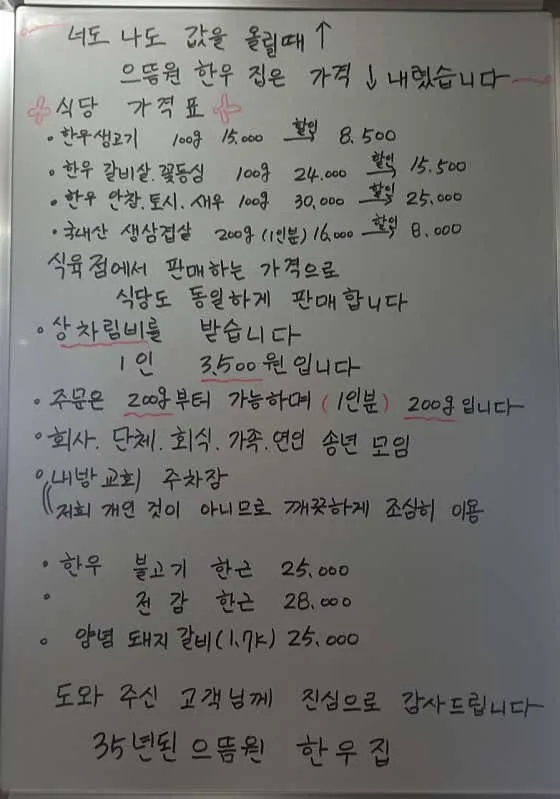 너도 나도 값을 올릴때 ↑
으뜸원 한우 집은 가격 ↓ 내렸습니다
식당 가격표
• 한우생고기 100g 15,000 할인→ 8.500
• 한우 갈비살.꽃등심 100g 24.000 할인→ 15.500
• 한우 안창.토시.새우 100g 30,000 할인→ 25.000
• 국내산 생삼겹살 200g (1인분) 16,000 할인→ 8.000
식육점에서 판매하는 가격으로
식당도 동일하게 판매합니다
• 상차림비를 받습니다
1인 3,500원입니다
• 주문은 200g부터 가능하며 (1인분) 200g입니다
• 회사. 단체. 회식. 가족.연인 송년 모임
• 내방교회 주차장
저희 개인 것이 아니므로 깨끗하게 조심히 이용
• 한우 불고기 한근 25.000
• 전감 한근 28.000
• 양념 돼지갈비(1.7K) 25.000
도와 주신 고객님께 진심으로 감사드립니다
35년된 으뜸원 한우집